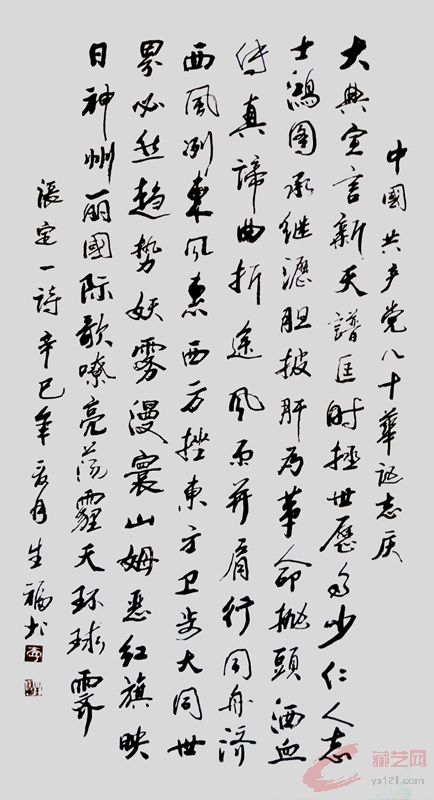 中國共产党八十華诞志庆
大典宣言新天譜匡时拯世歷多少仁人志
士鴻图承继瀝胆披肝為革命抛頭洒血
传真諦曲折途风雨并肩行同舟济
西風冽東风惠西方挫東方卫步大同世
界必然趋势妖雾漫寰山姆恶红旗映
日神州丽國际歌嘹亮荡霾天环球霁
張定一詩辛巳年夏月生福书
藏艺网
ys121.com